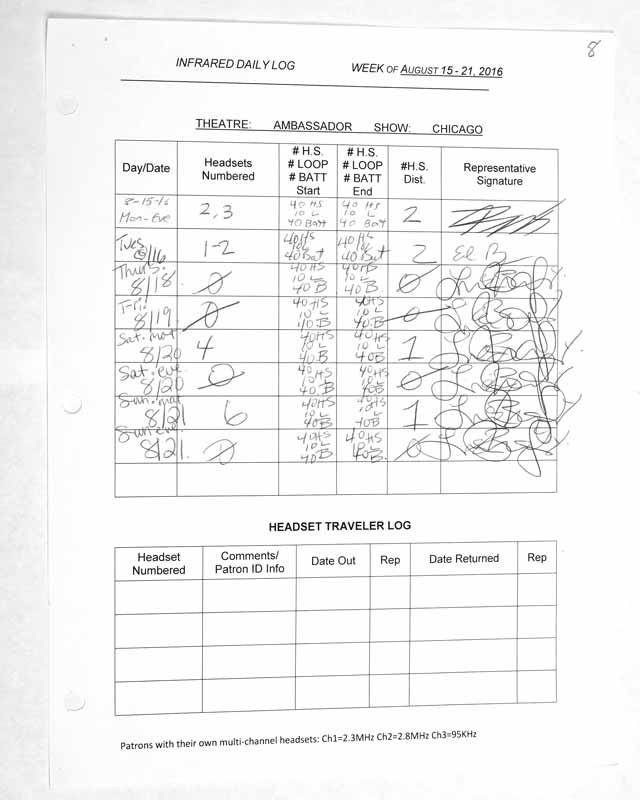 8
INFRARED DAILY LOG WEEK OF AUGUST 15 - 21, 2016
THEATRE: AMBASSADOR SHOW: CHICAGO
Day/Date Headsets Numbered # H.S. # LOOP # BATT Start # H.S. # LOOP # BATT End #H.S. Dist. Representative Signature
8-15-16 Mon-Eve 2,3 40 HS 10 L 40 Batt 40 HS 10 L 40 Batt 2
Tues 8/16 1-2 40HS 10L 40Bat 40HS 10L 40Bat 2 El B
Thurs. 8/18. 0 40HS 10 L 40 B 40HS 10 L 40 B. 0
Fri. 8/19. 0 40HS 10 L 40B 40HS 10 L 40B 0
Sat. mat 8/20 4 40HS 10 L 40B 40HS 10 L 40B 1
Sat. eve 8/20 0 40HS 10 L 40B 40HS 10 L 40B 0
Sun. mat 8/21 6 40HS 10 L 40B 40HS 10 L 40B 1
Sun eve 8/21. 0 40HS 10 L 40B 40HS 10 L 40B. 0
HEADSET TRAVELER LOG
Headset Numbered Comments/ Patron ID Info Date Out Rep Date Returned Rep
Patrons with their own multi-channel headsets: Ch1=2.3MHz Ch2=2.8MHz Ch3=95KHz